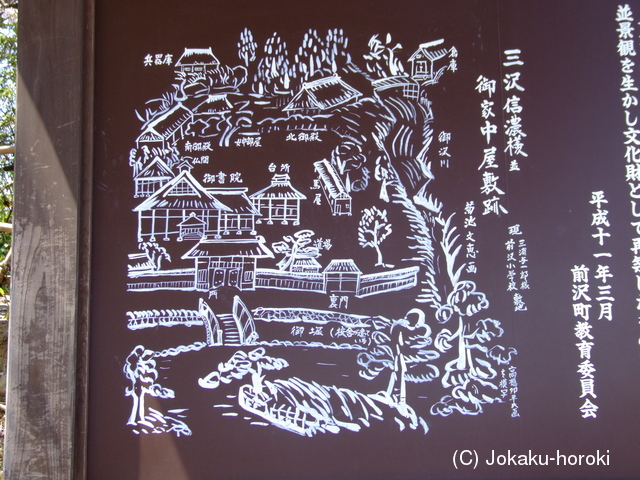 並景観を生かし文化財として
平成十一年三月
前沢町教育委員会
三沢信濃様並
御家中屋敷跡
現 前沢小学校敷地
菊池文恵画
兵器庫
倉庫
御沢川
北御殿
南御殿
仏閣
御書院
台所
馬屋
道場
門
裏門
御堀
(C) Jokaku-horoki